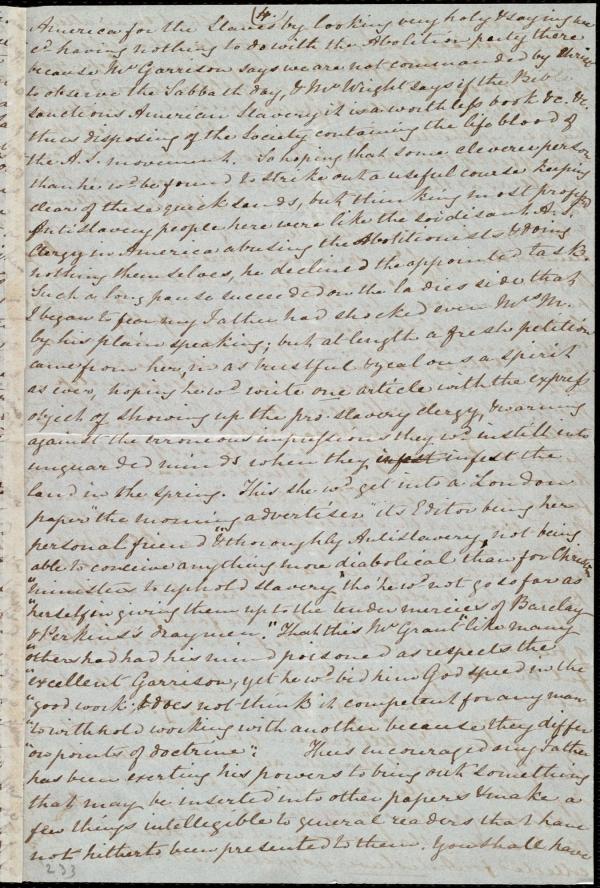 (4.
America for the Slaves by looking very holy & saying we
cd having nothing to do with the Abolition party there
because Mr Garrison says we are not commanded by Christ
to observe the Sabbath day, & Mr Wright says if the Bible
sanctions American Slavery it is a worthless book &c. &c.
thus disposing of the Society containing the life blood of
the A.S. movement. So hoping that some cleverer person
than he wd be found to strike out a useful course keeping
clear of these quicksands, but thinking most profsd
Antislavery people here were like the soi disant A.S.
Clergy in America abusing the Abolitionists & doing
nothing themselves, he declined the appointed task.
Such a long pause succeeded on the ladies side that
I began to fear my Father had shocked even Mrs M.
by his plain speaking; but at length a fresh petition
came from her, in as trustful & zealous a spirit
as ever, hoping he wd write one article with the express
object of showing up the pro-slavery clergy, & warning
against the erroneous impressions they wd instill into
unguarded minds when they infest infest the
land in the spring. This she wd get into a London
paper "the morning advertiser" its Editor being her
personal friend "& thoroughly Antislavery, not being
able to conceive anything more diabolical than for Christn
"ministers to uphold slavery, tho' he wd not go so far as
"herself in giving them up to the tender mercies of Barclay
& Perkins's draymen." That this Mr Grant "like many
"others had had his mind poisoned as respects the
"excellent Garrison, yet he wd bid him God speed in the
"good work; & does not think it competent for any man
"to withhold working with another because they differ
"on points of doctrine". Thus encouraged my Father
has been exerting his powers to bring out something
that may be inserted into other papers & make a
few things intelligible to general readers that have
not hitherto been presented to them. You shall have
233